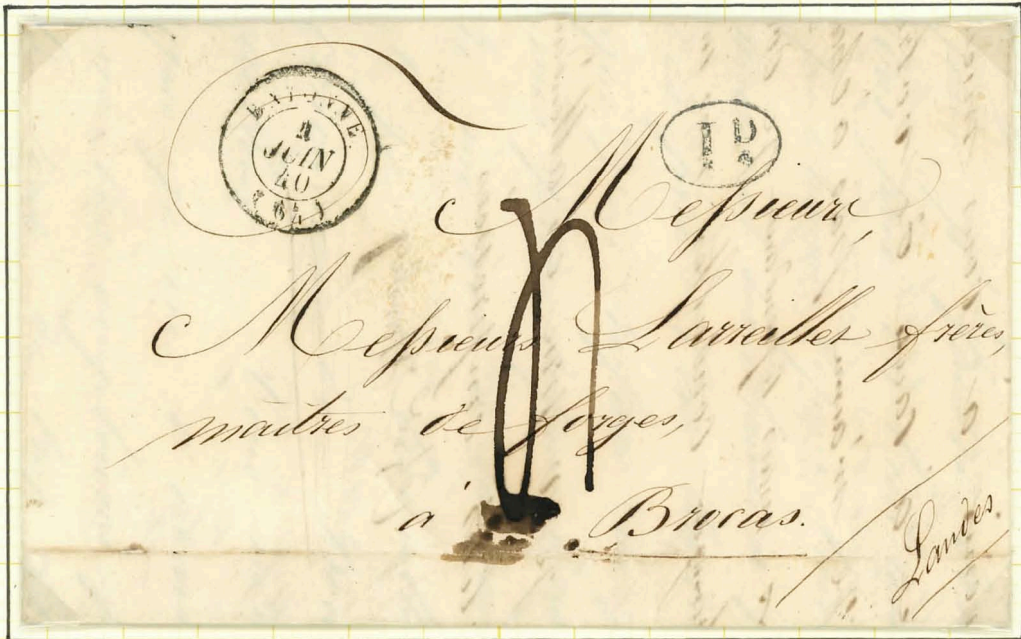 BAYONNE
4
JUIN
40
(64)
1D
Messieurs,
Messieurs Larreillet frères,
maîtres de forges,
à Brocas.
Landes.